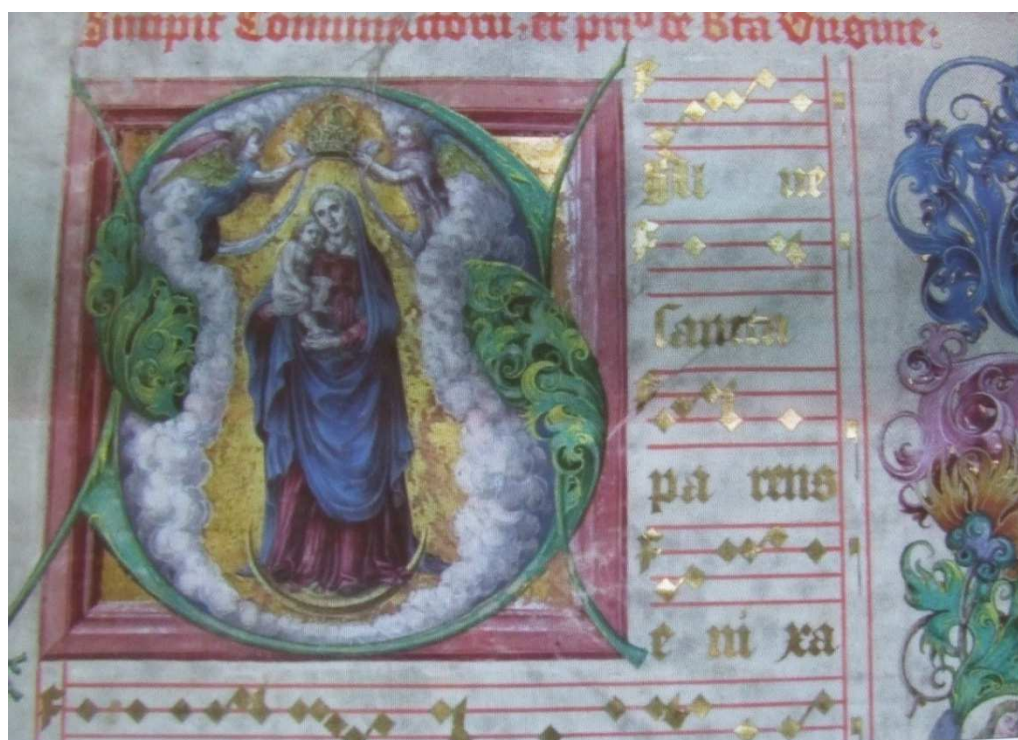 Incipit Comune sctorũ: et priº de bta Virgine:
Sal ue
sancta
pa rens
e ni xa